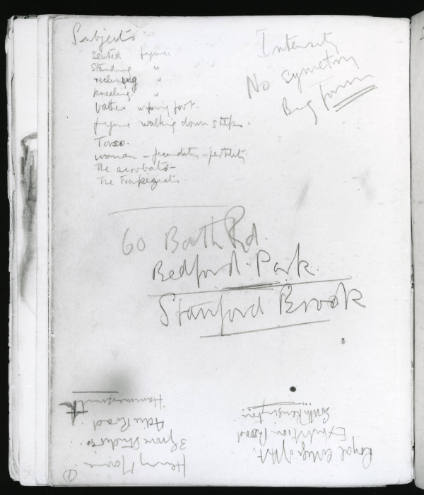 Subjects
seated figure
standing "
reclining "
kneeling "
bather wiping foot.
figure walking down steps.
Torso.
woman - fecundity - fertility
The acrobats -
The
Intensity
No symetry
Big form
60 Bath Rd.
Bedford Park.
Stamford Brook
Henry Moore
3 Grove Studios
Adie Road
Hammersmith
Royal College of Art.
Exhibition Road
South Kensington
1